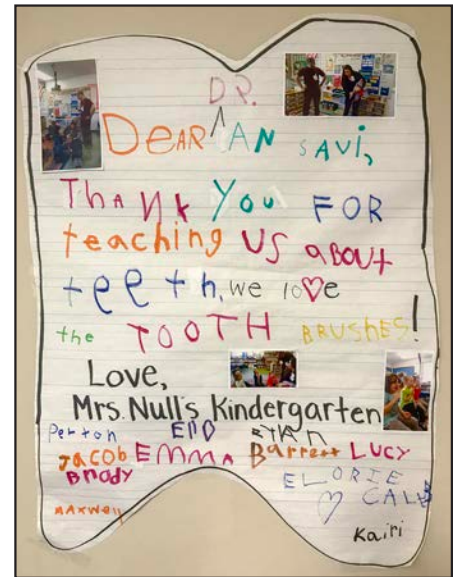 DR.
DEAR ^ AN SAVi,
ThANk You FOR
teaching US aBOUt
teeth, we lo♡e
the TOOTH BRUSHES!
Love,
Mrs. Null's Kindergarten
JacoB EMMA Barrett LUCY
BRody ELORIE
♡ CALEB
MAXwell
Kairi